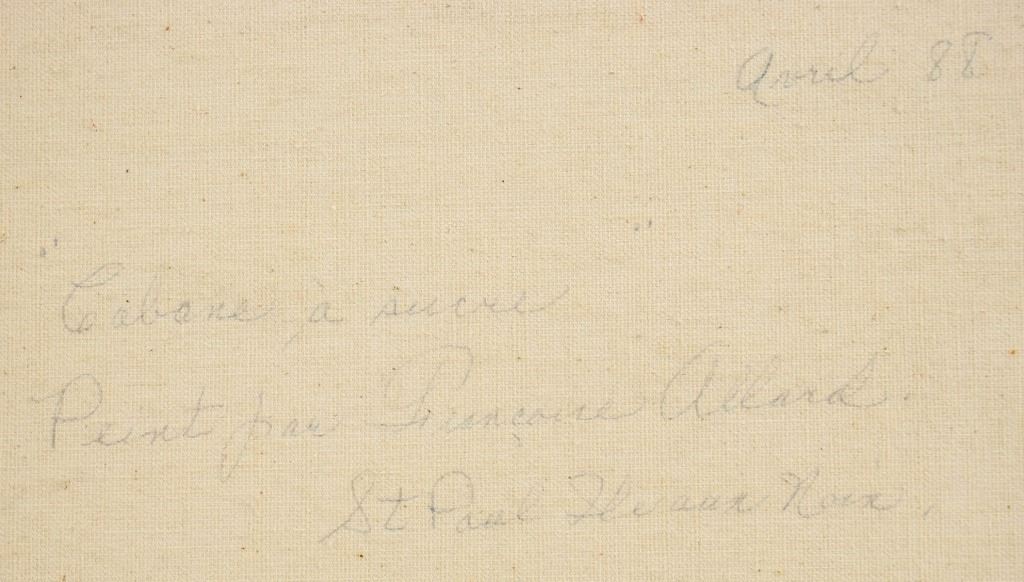 Avril 88
"Cabane à sucre"
Peint par Françoise Allard.
St Paul Ile aux Noix.